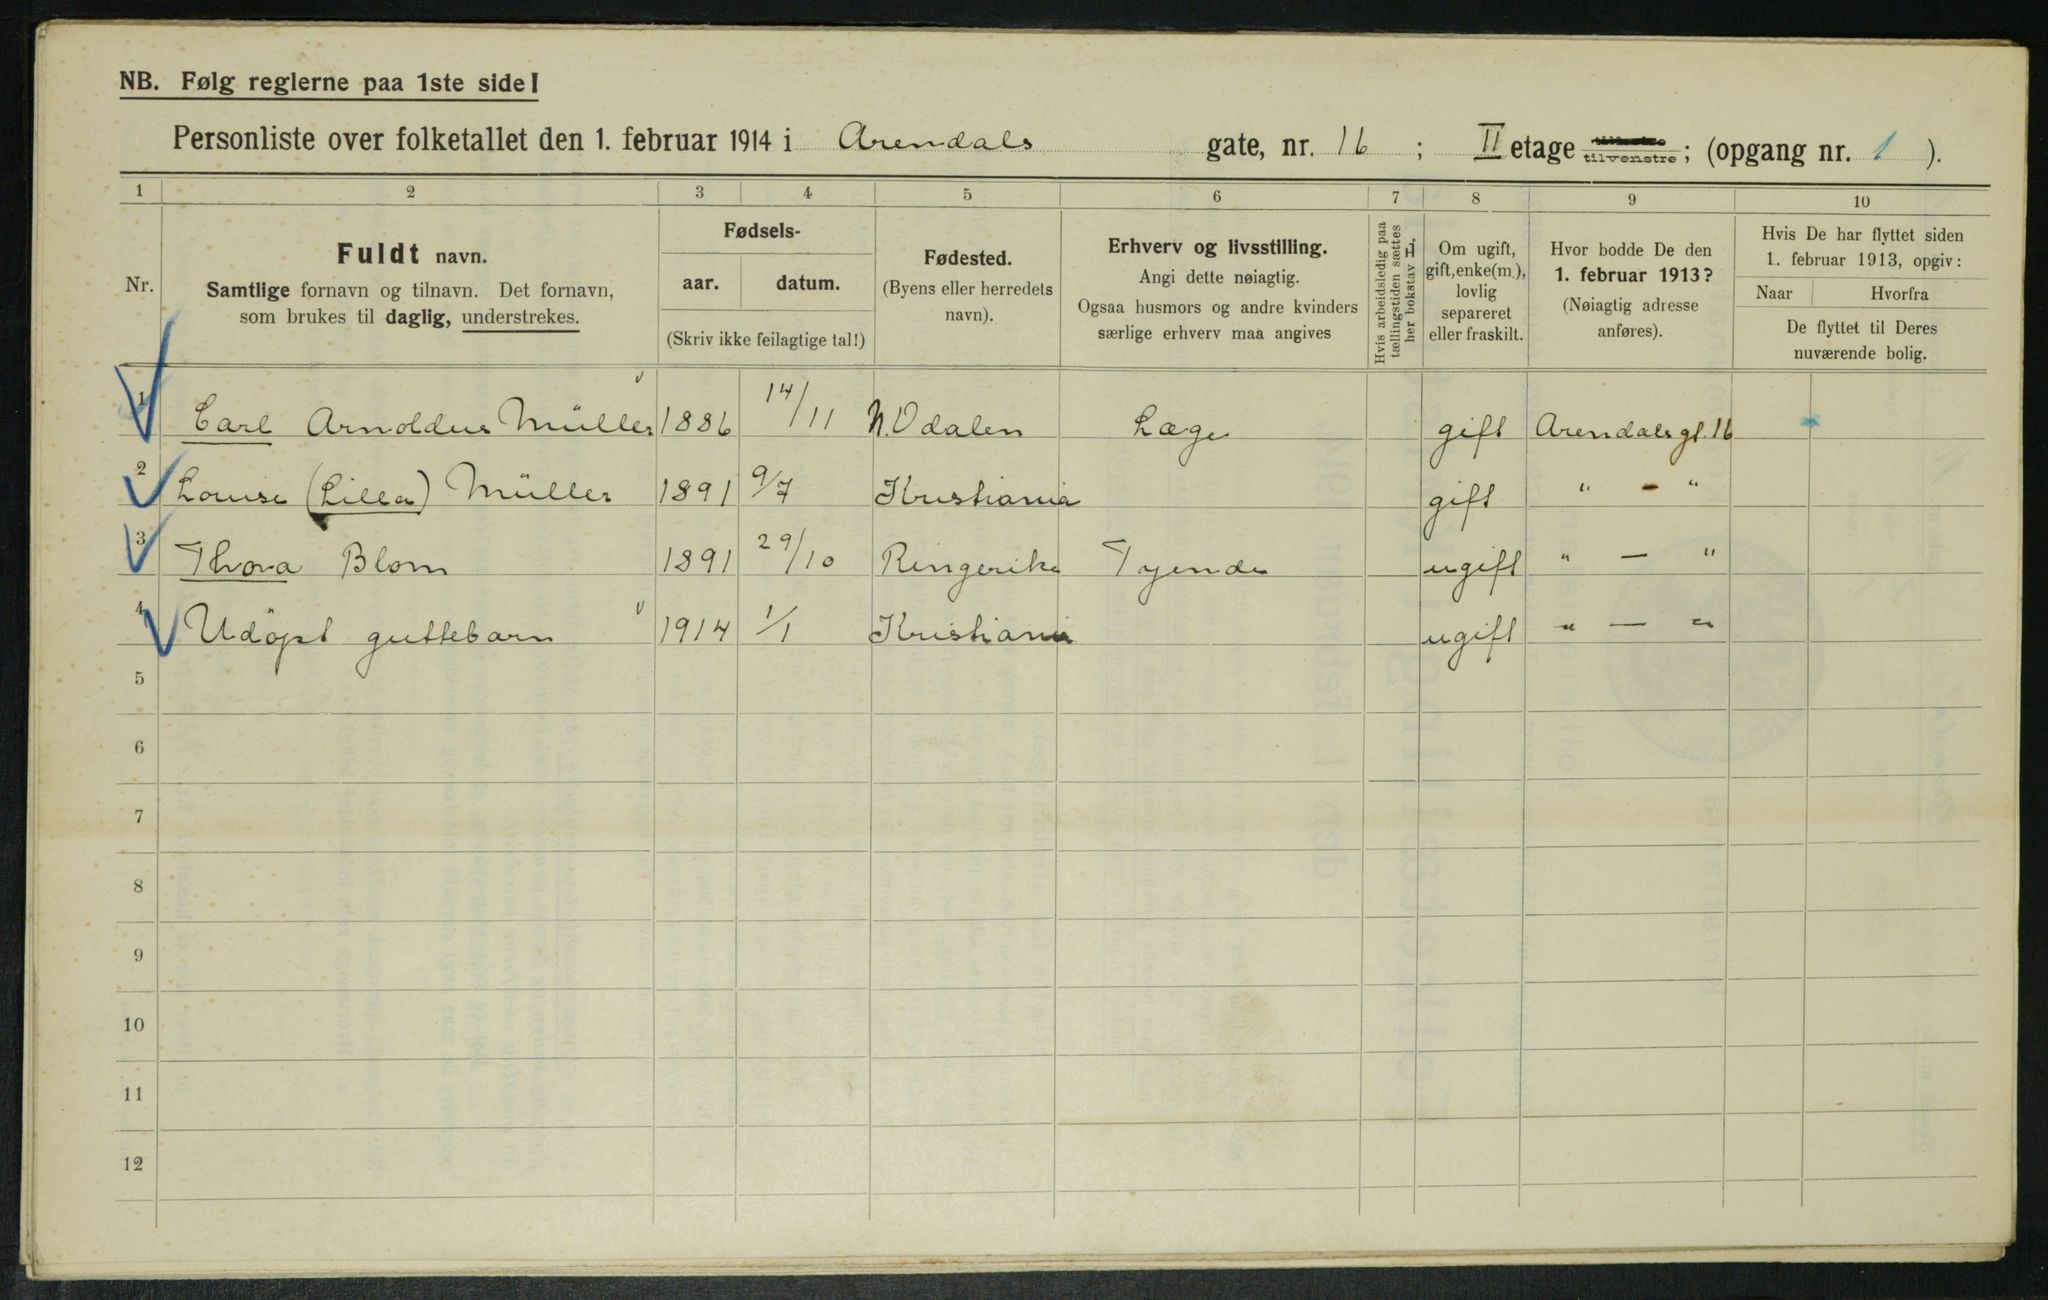 NB. Følg reglerne paa 1ste side!
Personliste over folketallet den 1. februar 1914 i Arendals gate, nr. 16 ; II etage tilvenstre; (opgang nr. 1 ).
1 2 3 4 5 6 7 8 9 10
Nr.
Fuldt navn.
Samtlige fornavn og tilnavn. Det fornavn,
som brukes til daglig, understrekes.
Fødsels-
aar. datum.
(Skriv ikke feilagtige tal!)
Fødested.
(Byens eller herredets
navn).
Erhverv og livsstilling.
Angi dette nøiagtig.
Ogsaa husmors og andre kvinders
særlige erhverv maa angives
Hvis arbeidsledig paa
tællingstiden sættes
her bokstav L.
Om ugift,
gift, enke(m.),
lovlig
separeret
eller fraskilt.
Hvor bodde De den
1. februar 1913?
(Nøiagtig adresse
anføres).
Hvis De har flyttet siden
1. februar 1913, opgiv:
Naar Hvorfra
De flyttet til Deres
nuværende bolig.
1 Carl Arnoldus Müller 1886 14/11 N. Odalen Læge gift Arendalsgt. 16
2 Louise (Lilla) Müller 1891 9/7 Kristiania gift " - "
3 Thora Blom 1891 29/10 Ringerike Tyende ugift " — "
4 Udöpt guttebarn 1914 1/1 Kristiania ugift " — "
5
6
7
8
9
10
11
12